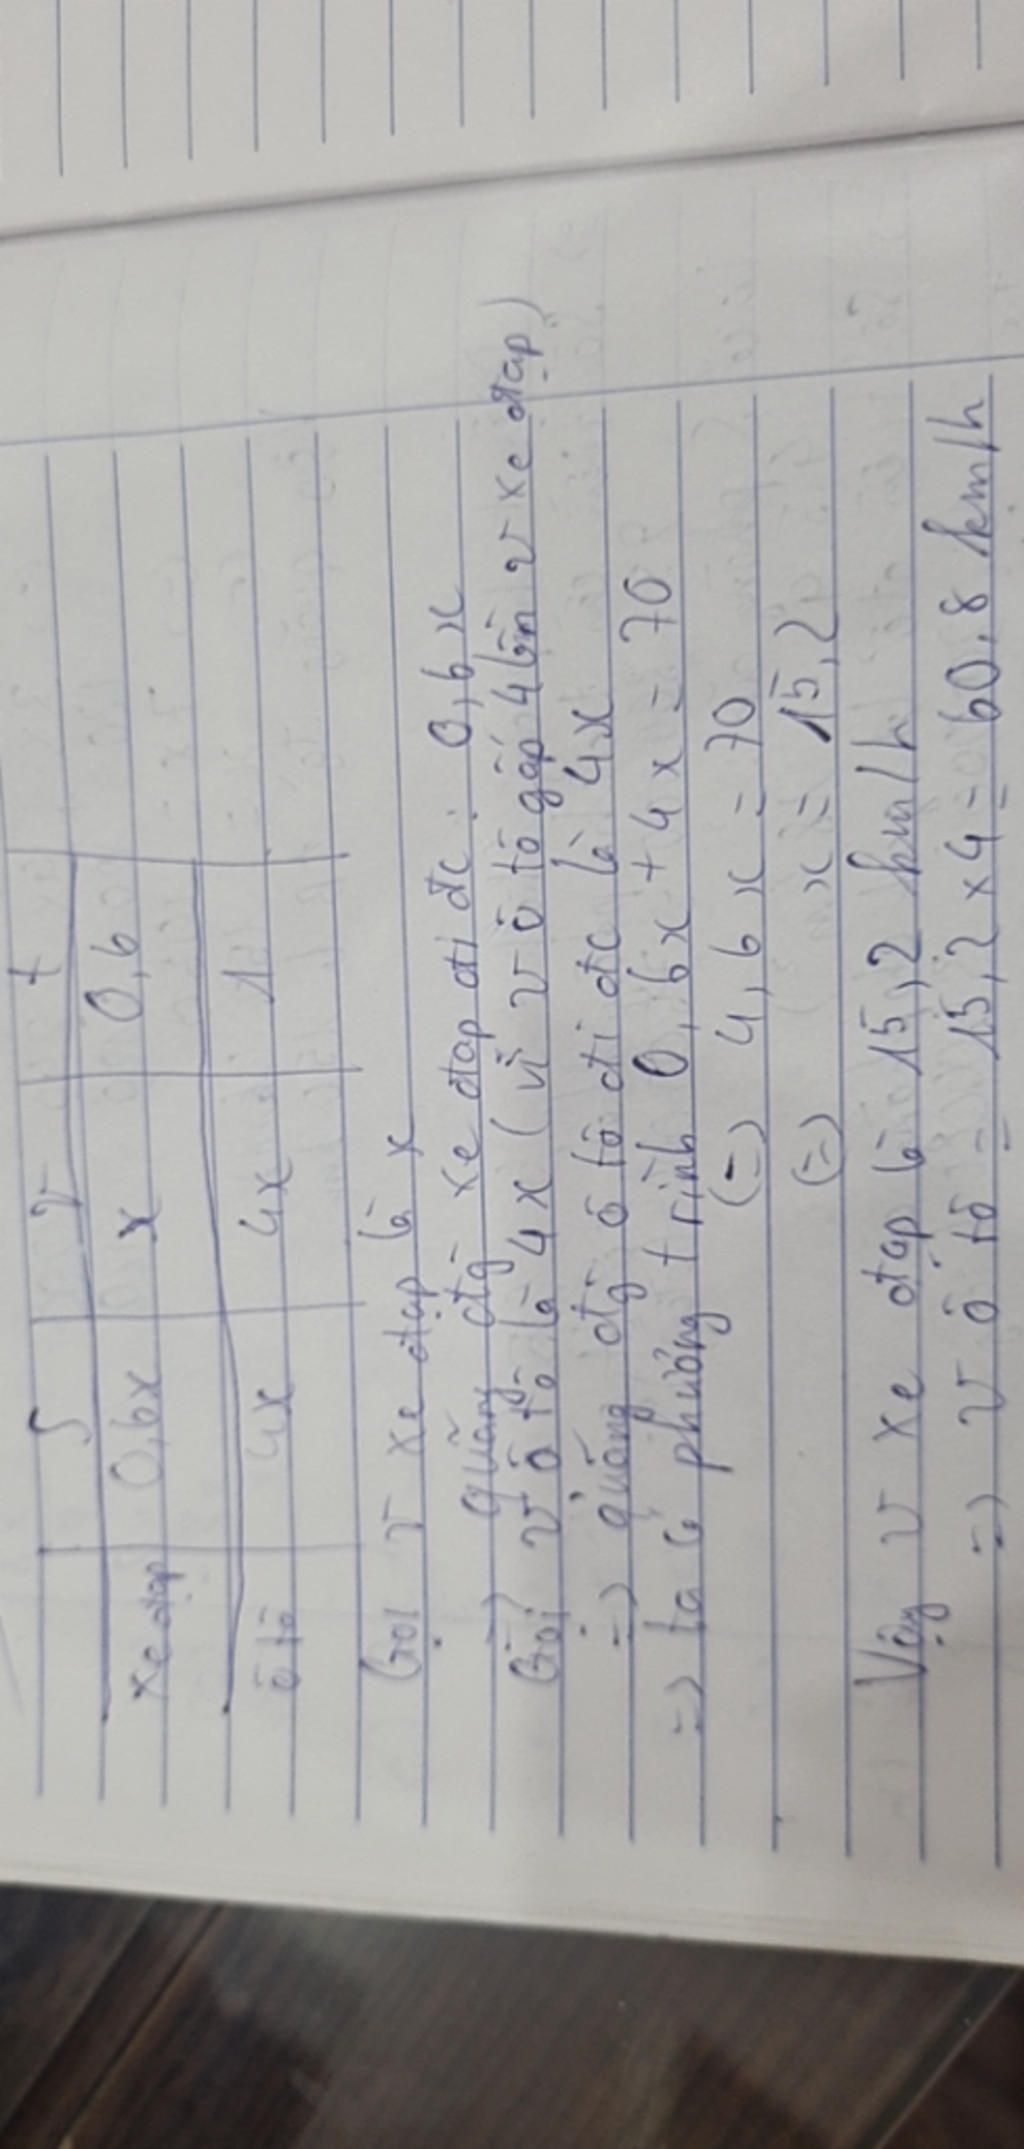 S v t
xe đạp 0,6x x 0,6
ô tô 4x 4x 1
Gọi v xe đạp là x
=) quãng đg xe đạp đi đc : 0,6x
Gọi v ô tô là 4x (vì v ô tô gấp 4 lần v xe đạp)
=) quãng đg ô tô đi đc là 4x
=) ta có phương trình 0,6x + 4x = 70
(=) 4,6x = 70
(=) x = 15,2
Vậy v xe đạp là 15,2 km/h
=) v ô tô = 15,2 x 4 = 60,8 km/h